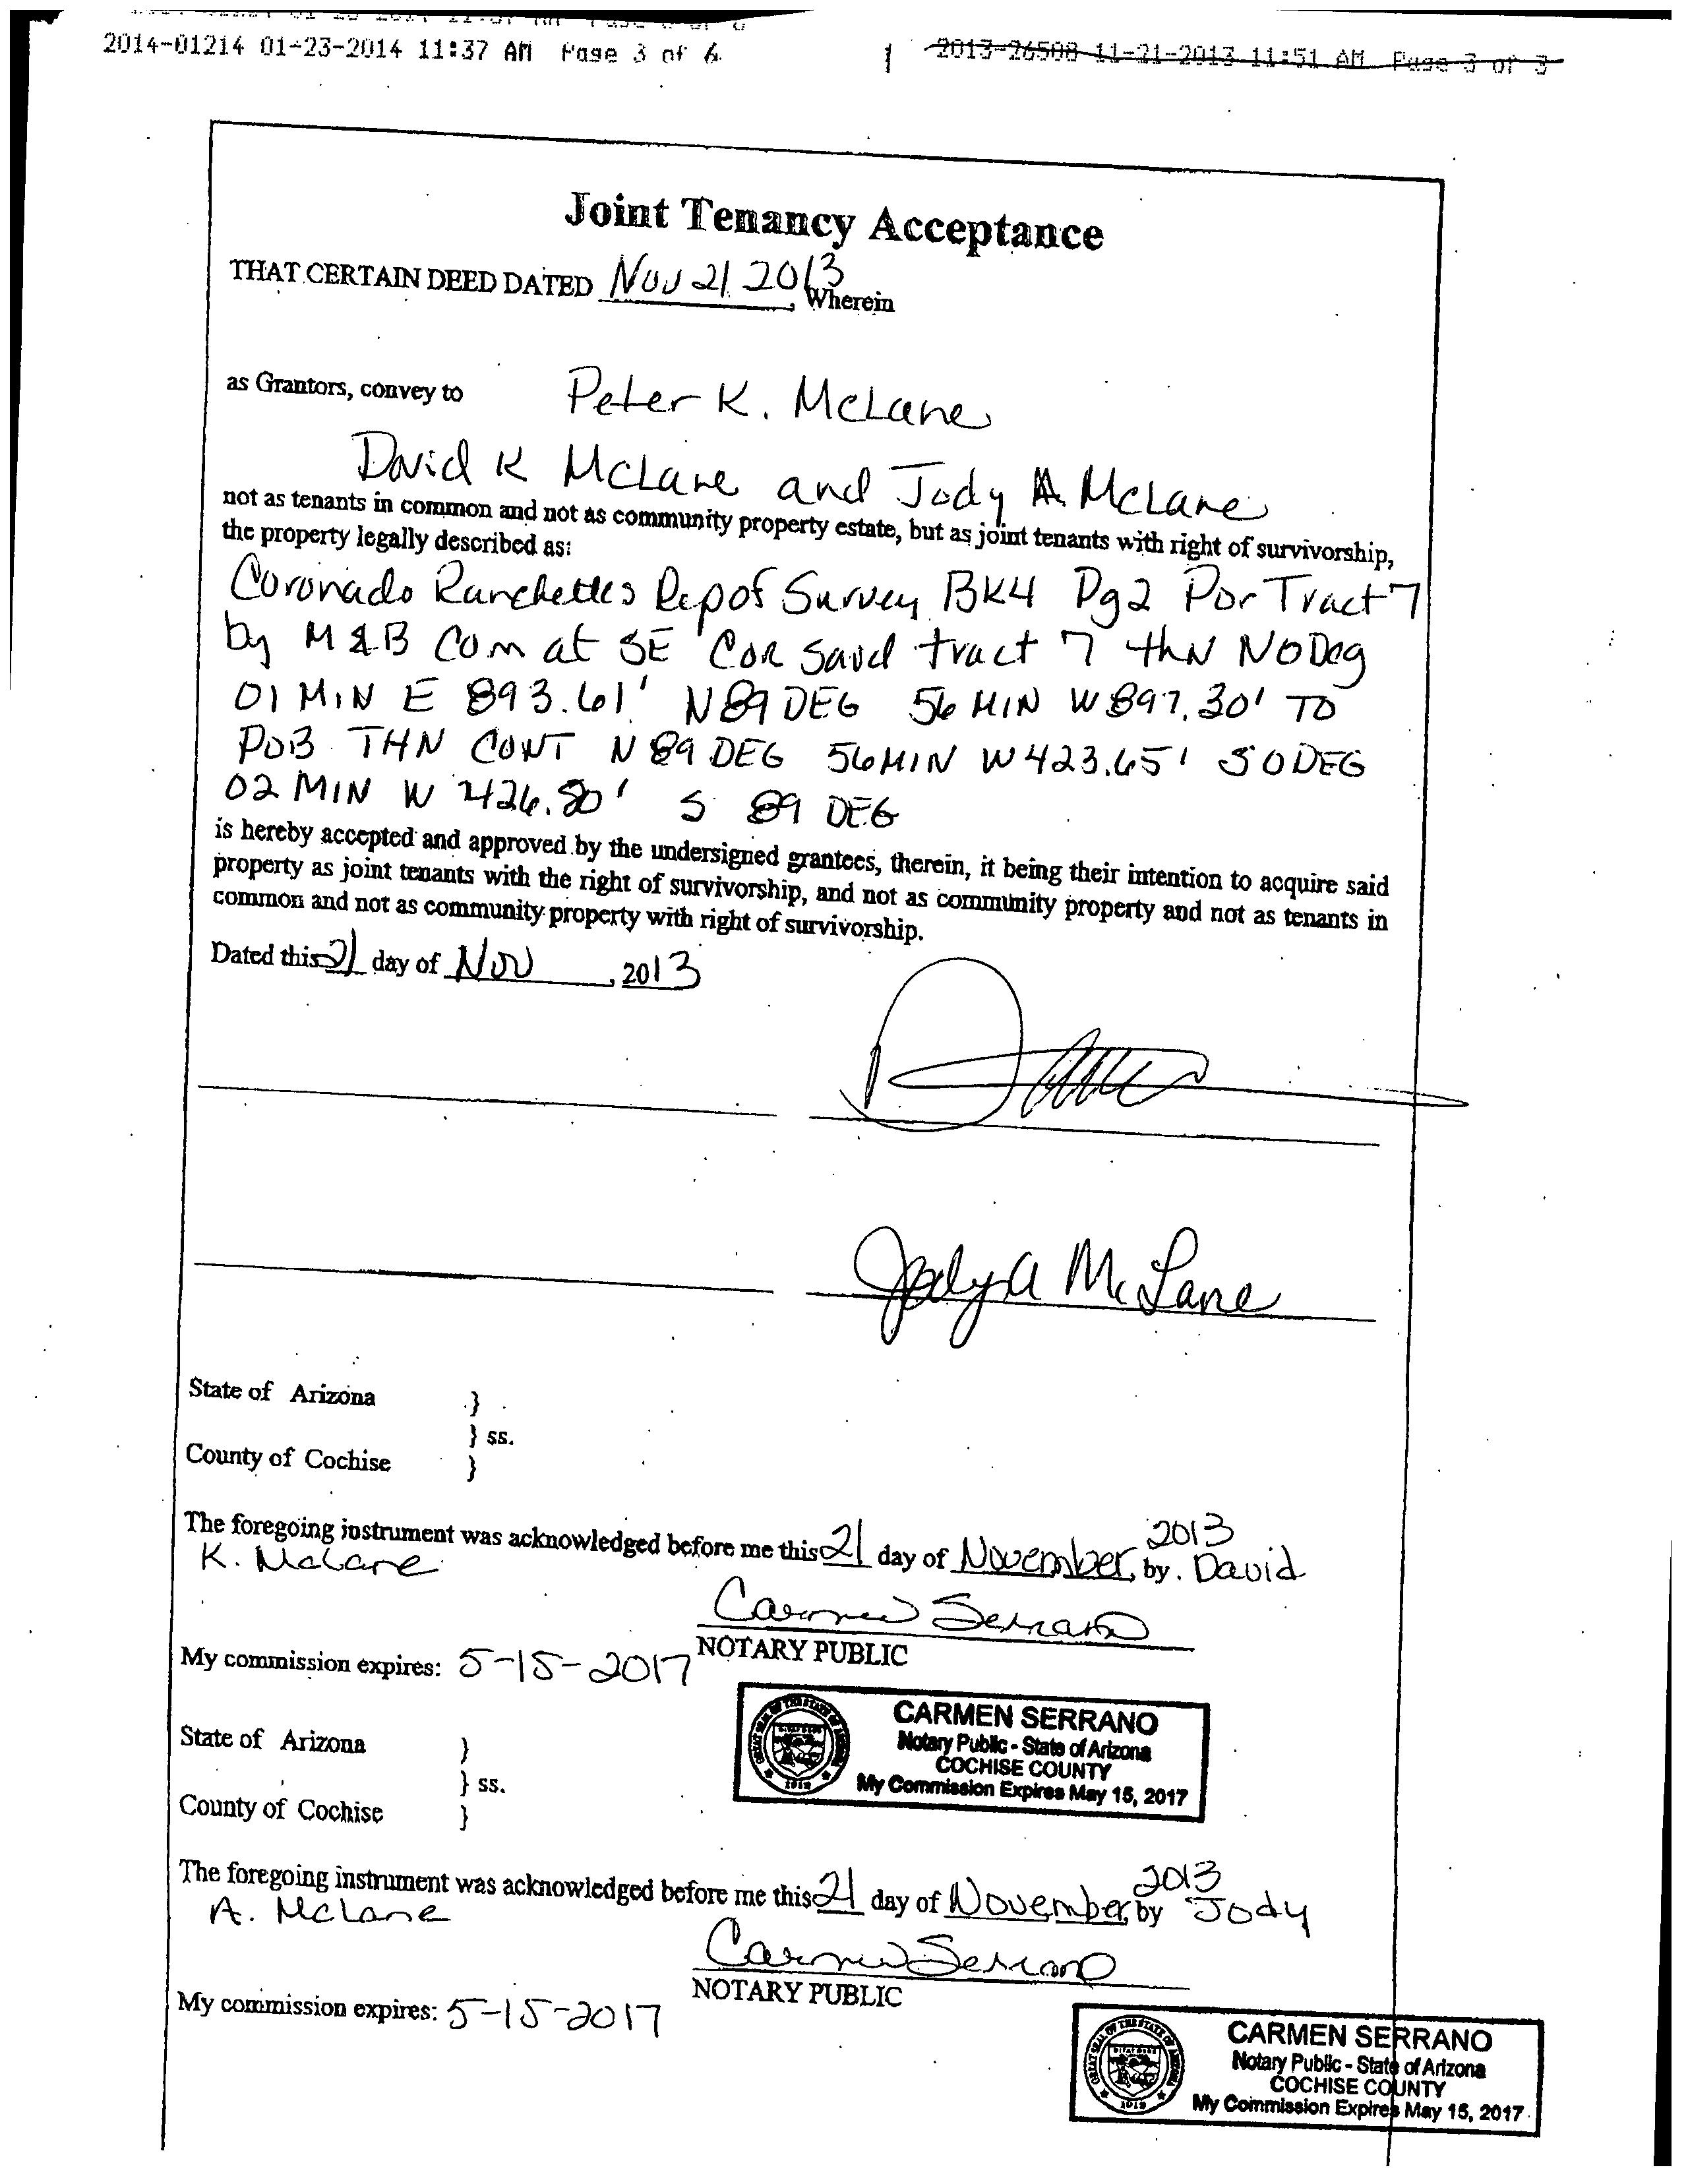 2014-01214 01-23-2014 11:37 AM Page 3 of 6
2013-26508 11-21-2013 11:51 AM Page 3 of 3
Joint Tenancy Acceptance
THAT CERTAIN DEED DATED Nov 21 2013, Wherein
as Grantors, convey to Peter K. McLane
David K McLane and Jody A. McLane
not as tenants in common and not as community property estate, but as joint tenants with right of survivorship,
the property legally described as:
Coronado Ranchettes Rep of Survey BK4 Pg2 Por Tract 7
by M&B Com at SE COR said tract 7 thN N0Deg
01 MIN E 893.61' N89 DEG 56 MIN W897.30' TO
POB THN CONT N 89 DEG 56MIN W423.65' S0DEG
02 MIN W 426.80' S 89 DEG
is hereby accepted and approved by the undersigned grantees, therein, it being their intention to acquire said
property as joint tenants with the right of survivorship, and not as community property and not as tenants in
common and not as community property with right of survivorship.
Dated this 21 day of Nov, 2013
Jody A McLane
State of Arizona }
} ss.
County of Cochise }
2013
The foregoing instrument was acknowledged before me this 21 day of November, by. David
K. McLane
Carmen Serrano
NOTARY PUBLIC
My commission expires: 5-15-2017
CARMEN SERRANO
Notary Public - State of Arizona
COCHISE COUNTY
My Commission Expires May 15, 2017
State of Arizona }
} ss.
County of Cochise }
2013
The foregoing instrument was acknowledged before me this 21 day of November, by Jody
A. McLane
Carmen Serrano
NOTARY PUBLIC
My commission expires: 5-15-2017
CARMEN SERRANO
Notary Public - State of Arizona
COCHISE COUNTY
My Commission Expires May 15, 2017